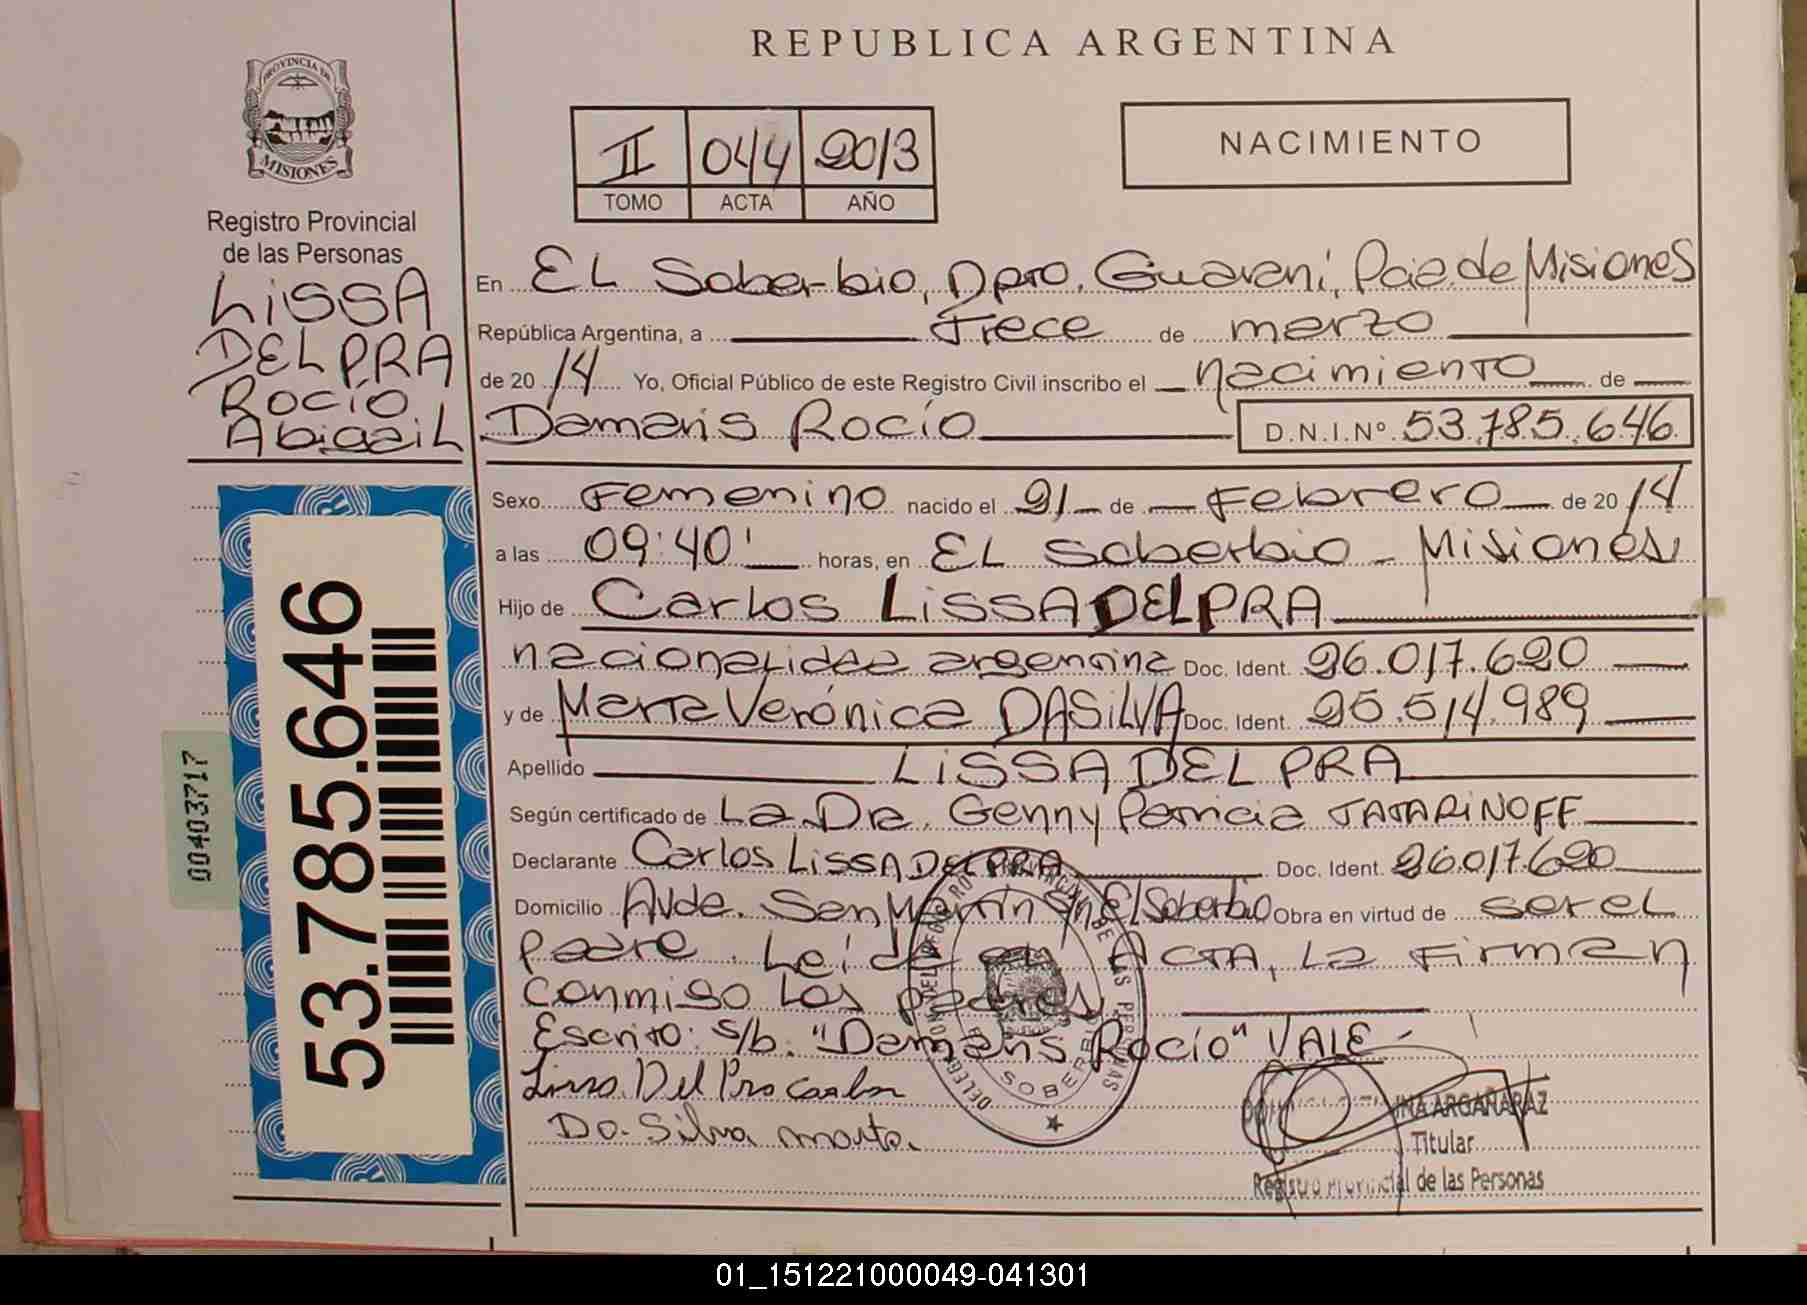 REPUBLICA ARGENTINA
PROVINCIA DE
MISIONES
Registro Provincial
de las Personas
LISSA
DEL PRA
Rocío
Abigail
II 044 2013
TOMO ACTA AÑO
NACIMIENTO
En EL Soberbio, Dpto. Guaraní, Pcia. de Misiones
República Argentina, a Trece de marzo
de 20 14 Yo, Oficial Público de este Registro Civil inscribo el nacimiento de
Damaris Rocío D.N.I.Nº 53.785.646
Sexo Femenino nacido el 21 de Febrero de 20 14
a las 09:40' horas, en EL Soberbio - Misiones
Hijo de Carlos LISSA DEL PRA
nacionalidad argentina Doc. Ident. 26.017.620
y de Marta Verónica DA SILVA Doc. Ident. 25.514.989
Apellido LISSA DEL PRA
Según certificado de La Dra. Genny Patricia TATARINOFF
Declarante Carlos LISSA DEL PRA Doc. Ident. 26.017.620
Domicilio Avda. San Martín s/n El Soberbio Obra en virtud de ser el
padre. Leída el ACTA, La Firman
conmigo Los padres
Escrito: s/b. "Damaris Rocío" VALE
Lissa Del Pra Carlos
Da Silva Marta
ARGAÑARAZ
Titular
Registro Provincial de las Personas
53.785.646
00403717
01_151221000049-041301